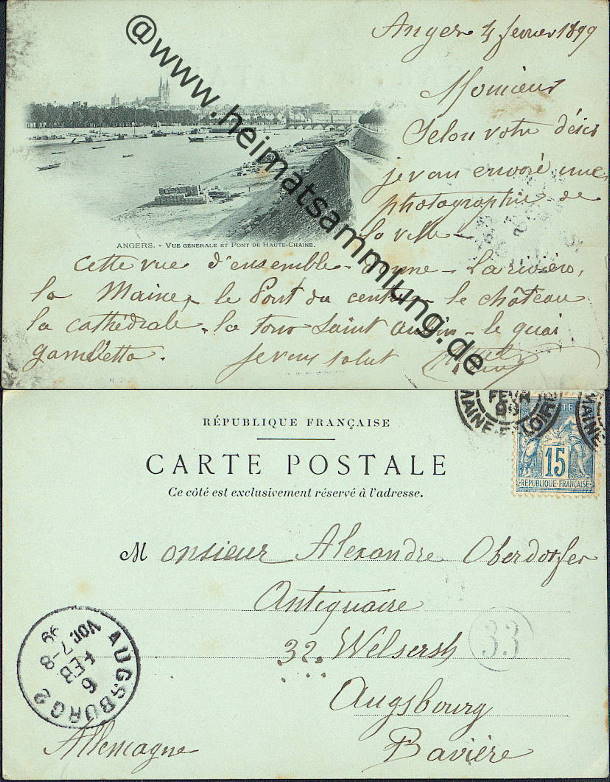 Angers 4 fevrier 1899
Monsieur
Selon votre désir
je vous envoie une
photographie de
la ville
ANGERS. - VUE GÉNÉRALE ET PONT DE HAUTE-CHAINE.
Cette vue d'ensemble donne - la rivière,
la Maine, le Pont du centre - le château
la cathédrale - la tour Saint Aubin - le quai
gambetta. je vous salut
@www.heimatsammlung.de
FEVR
99
MAINE-ET-LOIRE
MAINE
RÉPUBLIQUE FRANÇAISE
CARTE POSTALE
Ce côté est exclusivement réservé à l'adresse.
15
REPUBLIQUE FRANÇAISE
Monsieur Alexandre Oberdorfer
Antiquaire
32. Welsersh
33
Augsbourg
Allemagne Bavière
AUGSBURG 2
6
FEB
VOR. 7-8
99